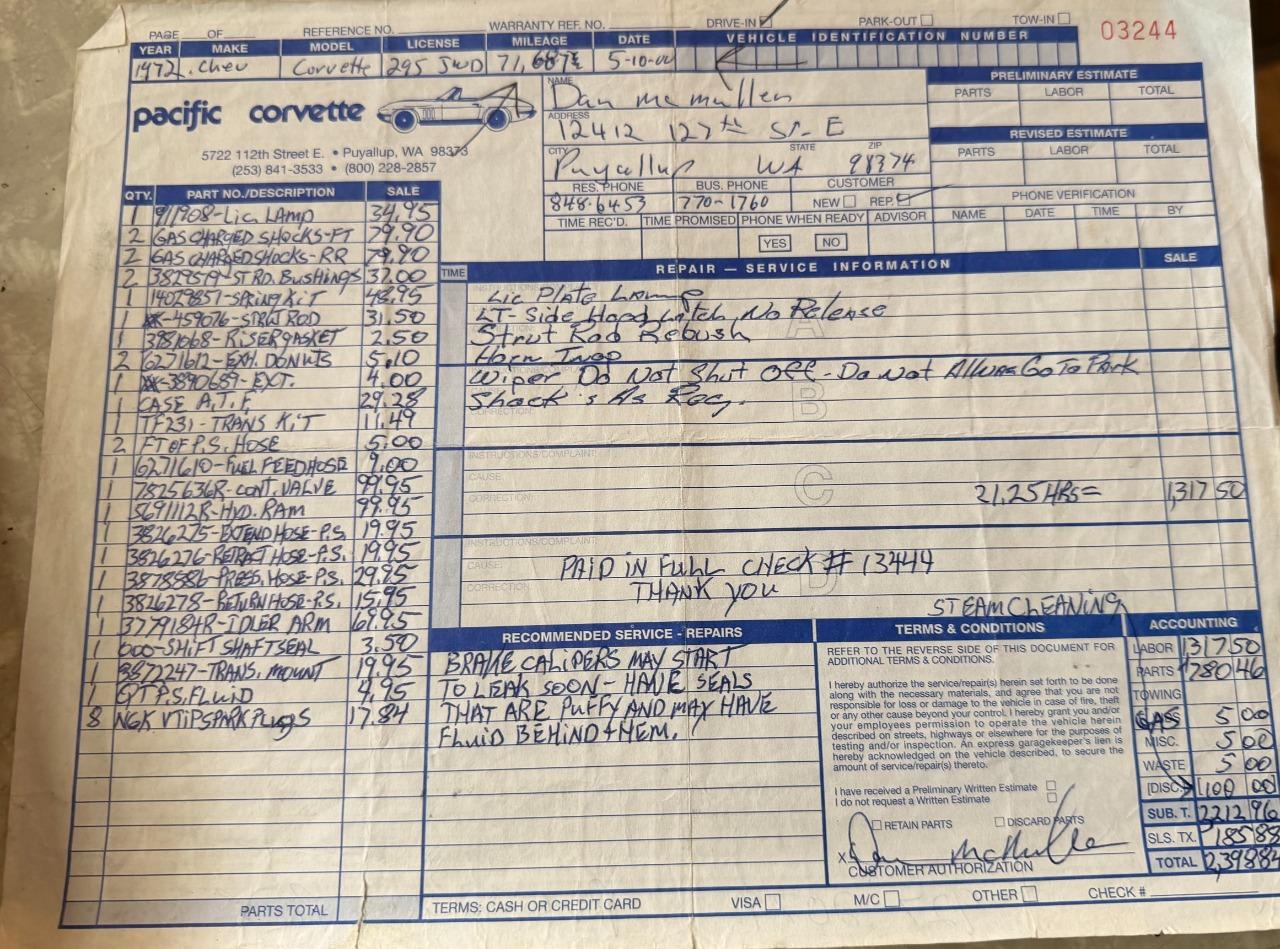 PAGE ___ OF ___ REFERENCE NO. WARRANTY REF. NO. DRIVE-IN PARK-OUT TOW-IN
03244
YEAR MAKE MODEL LICENSE MILEAGE DATE VEHICLE IDENTIFICATION NUMBER
1972 Chev Corvette 295 JWD 71,687 5-10-00
pacific corvette
5722 112th Street E. • Puyallup, WA 98373
(253) 841-3533 • (800) 228-2857
NAME
Dan McMullen
ADDRESS
12412 127th St. E
CITY STATE ZIP
Puyallup WA 98374
RES. PHONE BUS. PHONE CUSTOMER
848-6453 770-1760 NEW REP.
TIME REC'D. TIME PROMISED PHONE WHEN READY ADVISOR
YES NO
PRELIMINARY ESTIMATE
PARTS LABOR TOTAL
REVISED ESTIMATE
PARTS LABOR TOTAL
PHONE VERIFICATION
NAME DATE TIME BY
QTY. PART NO./DESCRIPTION SALE
1 911908-Lic. LAMP 34.95
2 GAS CHARGED SHOCKS-FT 79.90
2 GAS CHARGED SHOCKS-RR 79.90
2 3829579-ST RD. BUSHINGS 32.00
1 14029857-SPRING KIT 48.95
1 459076-STRUT ROD 31.50
1 3881068-RISER GASKET 2.50
2 6271612-EXH. DONUTS 5.10
1 3890689-EXT. 4.00
1 CASE A.T.F. 29.28
1 TF231-TRANS KIT 11.49
2 FT OF P.S. HOSE 5.00
1 6271610-FUEL FEED HOSE 9.00
1 7825636R-CONT. VALVE 99.95
1 5691112R-HYD. RAM 99.95
1 3826275-EXTEND HOSE-P.S. 19.95
1 3826276-RETRACT HOSE-P.S. 19.95
1 3878886-PRESS. HOSE-P.S. 29.95
1 3826278-RETURN HOSE-P.S. 15.95
1 3779184R-IDLER ARM 69.95
1 000-SHIFT SHAFT SEAL 3.50
1 3872247-TRANS. MOUNT 19.95
1 QT P.S. FLUID 4.95
8 NGK VTIP SPARK PLUGS 17.84
PARTS TOTAL
TIME REPAIR — SERVICE INFORMATION SALE
Lic Plate Lamp
LT-Side Hood Latch No Release
Strut Rod Rebush
Horn Inop
Wiper Do Not Shut Off-Do Not Allwas Go To Park
Shock's As Req.
INSTRUCTIONS/COMPLAINT:
CAUSE:
CORRECTION:
C
21.25 HRS= 1,317 50
INSTRUCTIONS/COMPLAINT:
CAUSE:
CORRECTION:
PAID IN FULL CHECK # 13444
THANK YOU
STEAM CLEANING
RECOMMENDED SERVICE - REPAIRS
BRAKE CALIPERS MAY START
TO LEAK SOON- HAVE SEALS
THAT ARE PUFFY AND MAY HAVE
FLUID BEHIND THEM.
TERMS & CONDITIONS
REFER TO THE REVERSE SIDE OF THIS DOCUMENT FOR
ADDITIONAL TERMS & CONDITIONS.
I hereby authorize the service/repair(s) herein set forth to be done
along with the necessary materials, and agree that you are not
responsible for loss or damage to the vehicle in case of fire, theft
or any other cause beyond your control. I hereby grant you and/or
your employees permission to operate the vehicle herein
described on streets, highways or elsewhere for the purposes of
testing and/or inspection. An express garagekeeper's lien is
hereby acknowledged on the vehicle described, to secure the
amount of service/repair(s) thereto.
I have received a Preliminary Written Estimate
I do not request a Written Estimate
RETAIN PARTS DISCARD PARTS
X Dan McMullen
CUSTOMER AUTHORIZATION
ACCOUNTING
LABOR 1317 50
PARTS 780 46
TOWING
GAS 5 00
MISC. 5 00
WASTE 5 00
[DISC.] [100 00
SUB. T. 2212 96
SLS. TX. 185 88
TOTAL 2,398 84
TERMS: CASH OR CREDIT CARD VISA M/C OTHER CHECK #